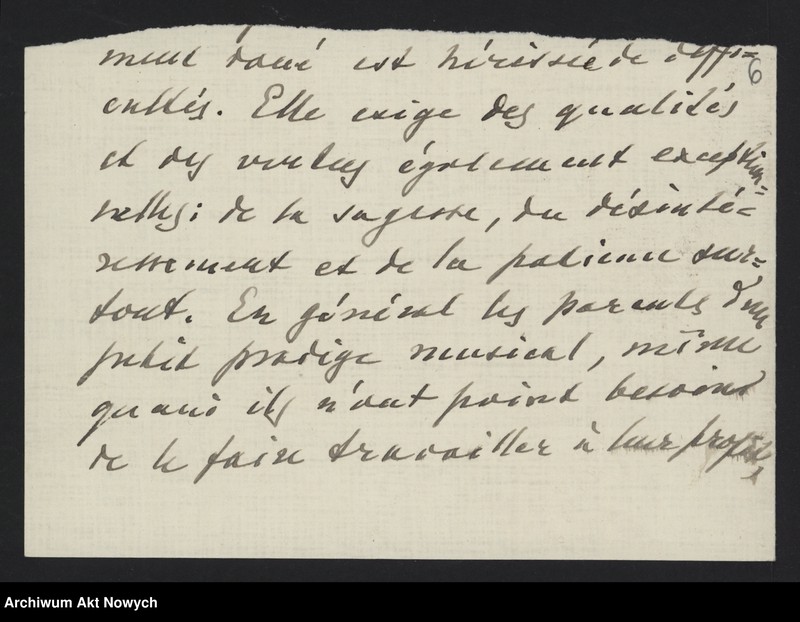 ment doué est hérissée de diffi=
6
cultés. Elle exige des qualités
et des vertus également exception=
nelles: de la sagesse, du désinté=
ressement et de la patience sur=
tout. En général les parents d'un
petit prodige musical, même
quand ils n'ont point besoin
de le faire travailler à leur profit,
Archiwum Akt Nowych